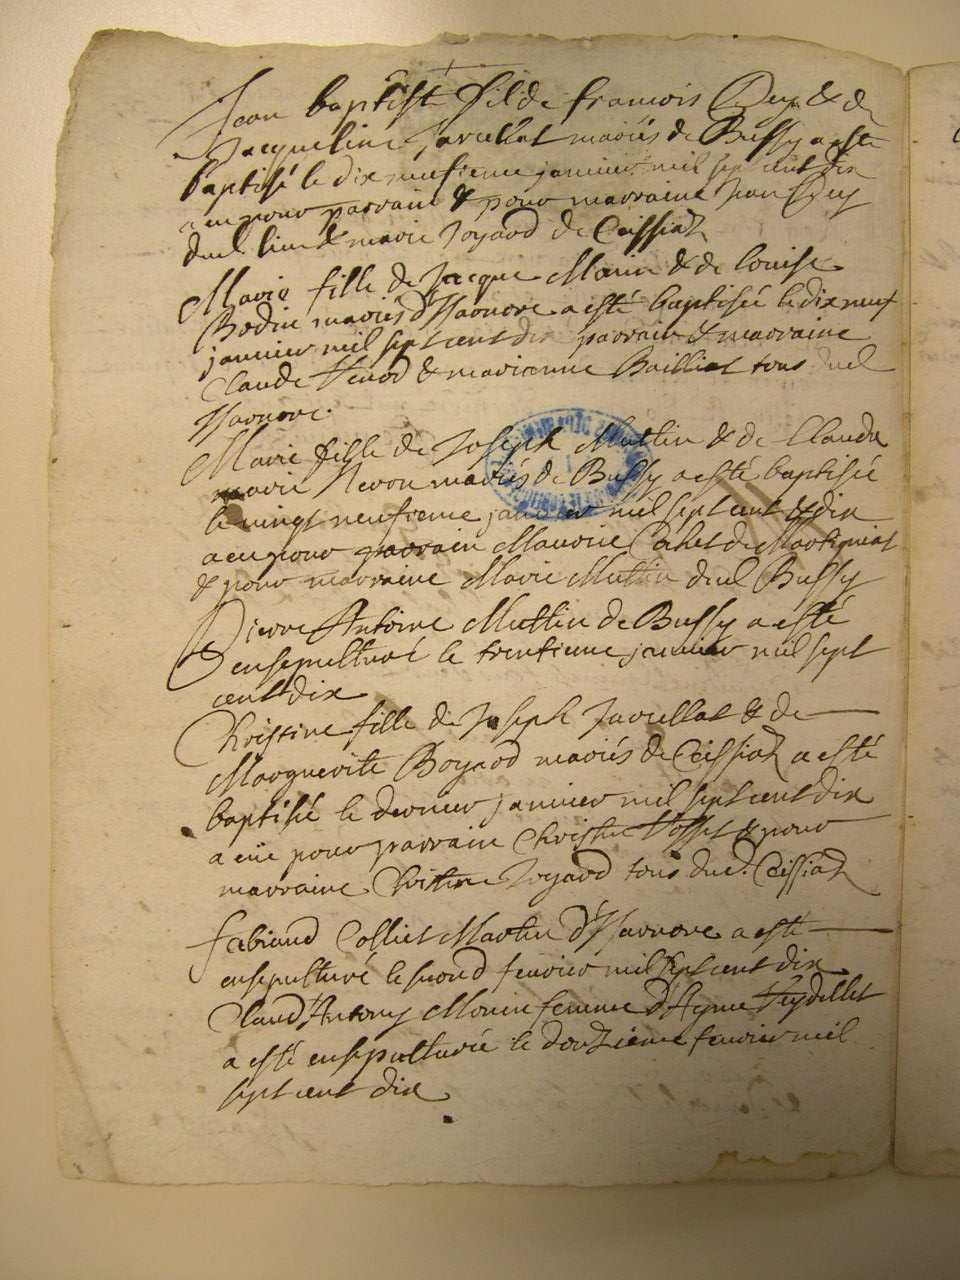 Jean baptiste fil de francois Dey & de
Jacqueline Javellot mariés de Bussy a esté
baptisé le dix neufieme janvier mil sept cent dix
a eu pour parrain & pour marraine Jean Dey
dud. lieu & marie Joyard de Ceissiat
Marie fille de Jacque Monin & de louise
Bodin mariés d'Isarnore a esté baptisée le dix neuf
janvier mil sept cent dix parrain & marraine
Claude & marienne Bailliat tous dud
Isarnore.
Marie fille de Joseph Muttin & de Claude
marie Neron mariés de Bussy a esté baptisée
le vingt neufieme janvier mil sept cent & dix
a eu pour parrain Maurice Cochet de Martigniat
& pour marraine Marie Muttin dud Bussy
Pierre Antoine Muttin de Bussy a esté
ensepulturé le trentieme janvier mil sept
cent dix
Christine fille de Joseph Javellot & de
Marguerite Boyard mariés de Ceissiat a esté
baptisée le dernier janvier mil sept cent dix
a eüe pour parrain & pour
marraine Joyard tous dud. Ceissiat
fabiand Colliet Martin d'Isarnore a esté
ensepulturé le second fevrier mil sept cent dix
Claud'Antony Monin femme d'Ayme Veydellet
a esté ensepulturée le douzieme fevrier mil
sept cent dix